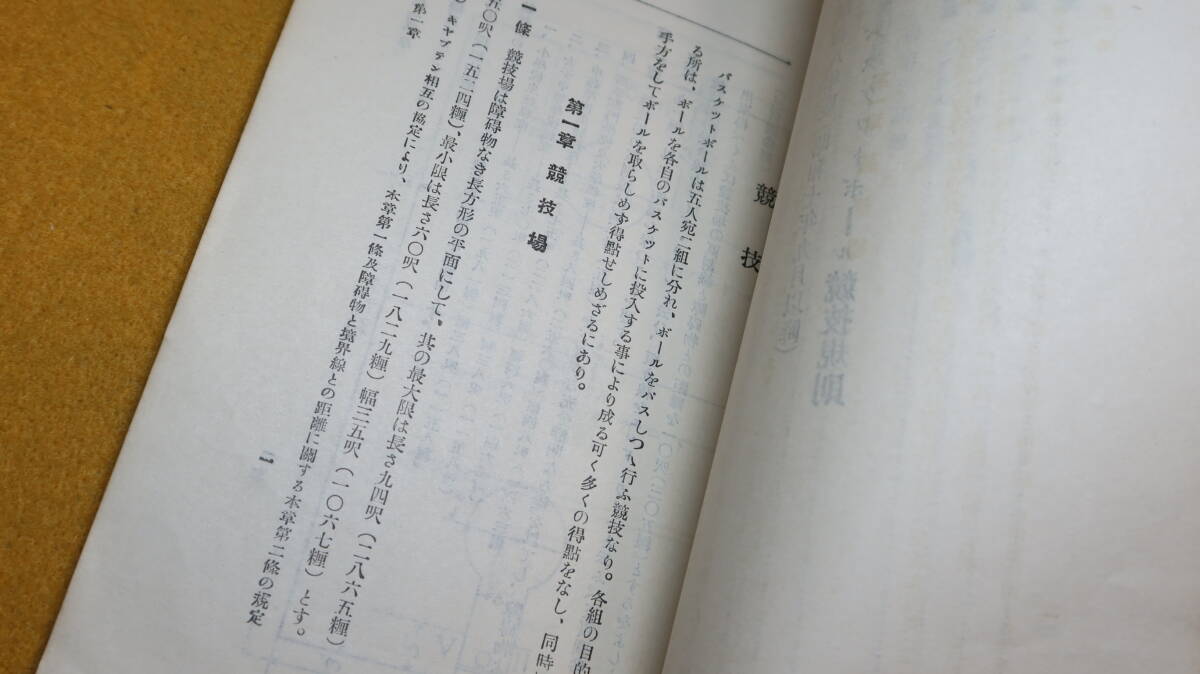 競技
バスケットボールは五人宛二組に分れ、ボールをパスしつゝ行ふ競技なり。各組の目的
る所は、ボールを各自のバスケットに投入する事により成る可く多くの得點をなし、同時
手方をしてボールを取らしめず得點せしめざるにあり。
第一章 競技場
一條 競技場は障碍物なき長方形の平面にして、其の最大限は長さ九四呎(二八六五糎)
五〇呎(一五二四糎)、最小限は長さ六〇呎(一八二九糎)幅三五呎(一〇六七糎)とす。
キャプテン相互の協定により、本章第一條及障碍物と境界線との距離に關する本章第二條の規定
第一章
一
ボール競技規則